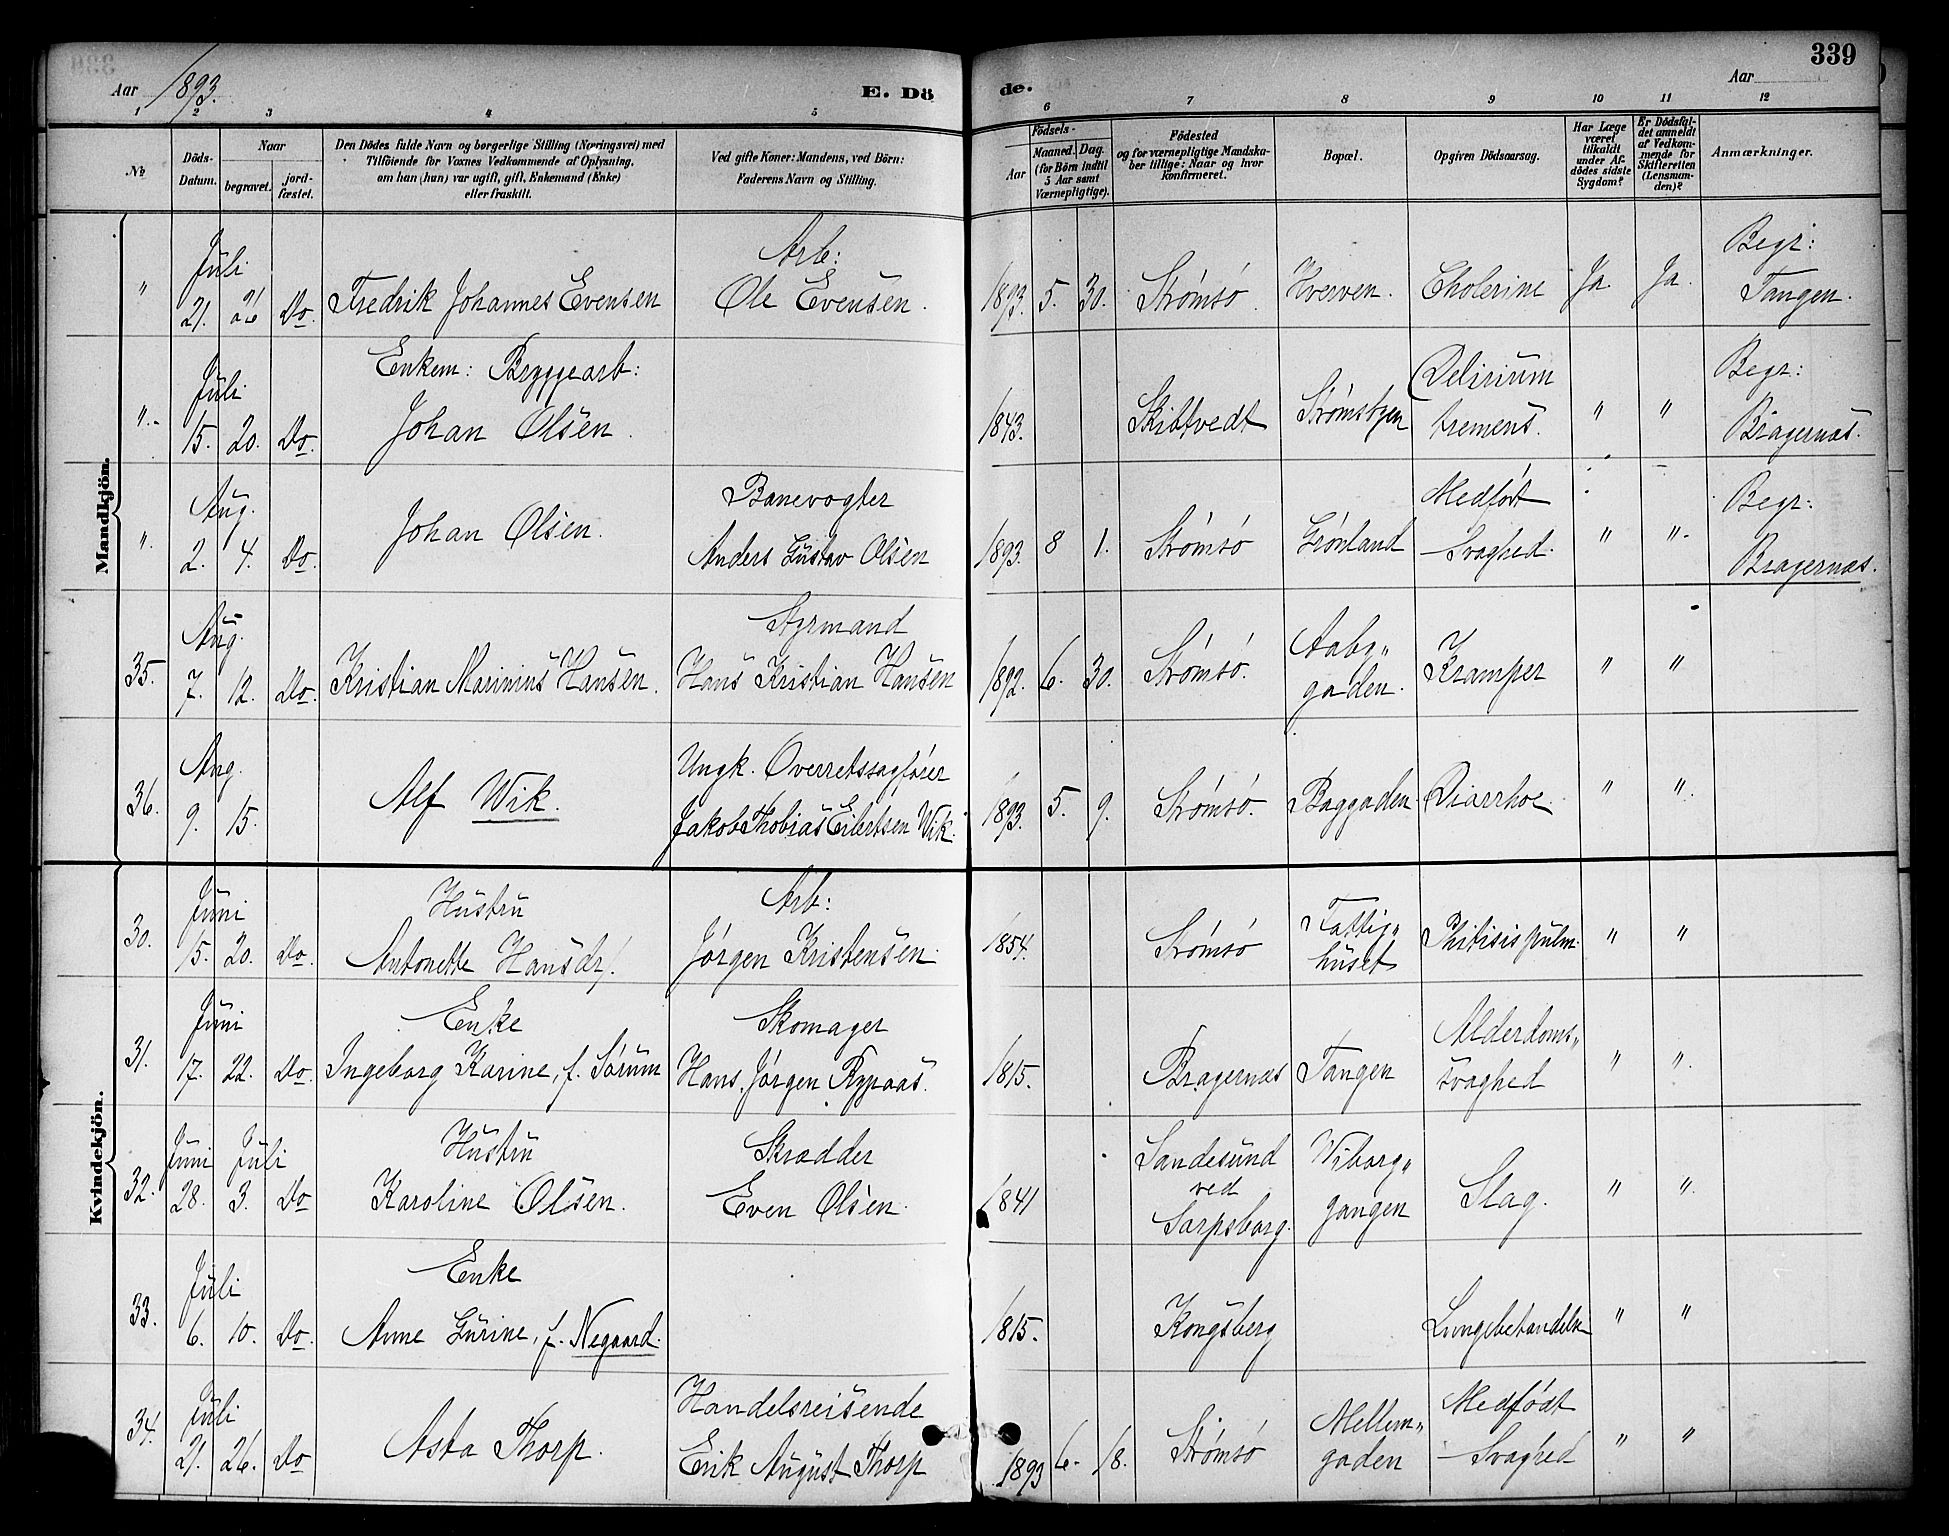 339
Aar 1893. E. Dö
de. Aar
1 2 3 4 5
6 7 8 9 10 11 12
No
Döds-Datum.
Naar
begravet.
jord-fæstet.
Den Dödes fulde Navn og borgerlige Stilling (Næringsvei) med
Tilföiende for Voxnes Vedkommende af Oplysning,
om han (hun) var ugift, gift, Enkemand (Enke)
eller fraskilt.
Ved gifte Koner: Mandens, ved Börn:
Faderens Navn og Stilling.
Födsels-
Aar
Maaned. Dag.
(for Börn indtil
5 Aar samt
Værnepligtige).
Födested
og for værnepligtige Mandska-
ber tillige: Naar og hvor
konfirmeret.
Bopæl.
Opgiven Dödsaarsag.
Har Læge
været
tilkaldt
under Af-
dödes sidste
Sygdom?
Er Dödsfal-
det anmeldt
af Vedkom-
mende for
Skifteretten
(Lensman-
den)?
Anmærkninger.
Mandkjön.
Juli Arb: Begr:
" 21. 26 Do. Fredrik Johannes Evensen Ole Evensen. 1893. 5. 30. Strømsø. Hverven. Cholerine Ja. Ja. Tangen.
Juli Enkem: Bryggearb: Delirium Begr:
" 15. 20. Do. Johan Olsen. 1843. Skibtvedt Strømsbyen tremens. " " Bragernæs.
Aug. Banevogter Medfødt Begr:
" 2. 4. Do. Johan Olsen. Anders Gustav Olsen 1893. 8 1. Strømsø Grønland Svaghed. " " Bragernæs.
Aug. Styrmand Aaby"
35. 7. 12. Do. Kristian Marinius Hansen. Hans Kristian Hansen 1892. 6. 30. Strømsø. gaden. Kramper " "
Aug. Ungk. Overretssagfører
36. 9. 15. Alf Wik. Jakob Thobias Eilertsen Wik. 1893. 5. 9. Strømsø. Baggaden Diarrhoe " "
Kvindekjön.
Juni Hustru Arb: Fattig"
30. 15. 20. Do. Antonette Hansdr. Jørgen Kristensen. 1854. Strømsø huset Phtisis pulm. " "
Juni Enke Skomager Alderdoms"
31. 17. 22. Do. Ingeborg Karine, f. Sørum Hans Jørgen Rypaas. 1815. Bragernæs Tangen svaghed " "
Juni Juli Hustru Skrædder Sandesund Wiborg"
ved
32. 28. 3. Do Karoline Olsen. Even Olsen. 1841 Sarpsborg. gangen Slag. " "
Juli Enke
33. 6. 10. Do. Anne Gurine, f. Negaard. 1815. Kongsberg " "
Juli Handelsreisende Mellem" Medfødt
34. 21. 26. Do Asta Thorp. Erik August Thorp 1893 6. 18. Strømsø gaden Svaghed " "